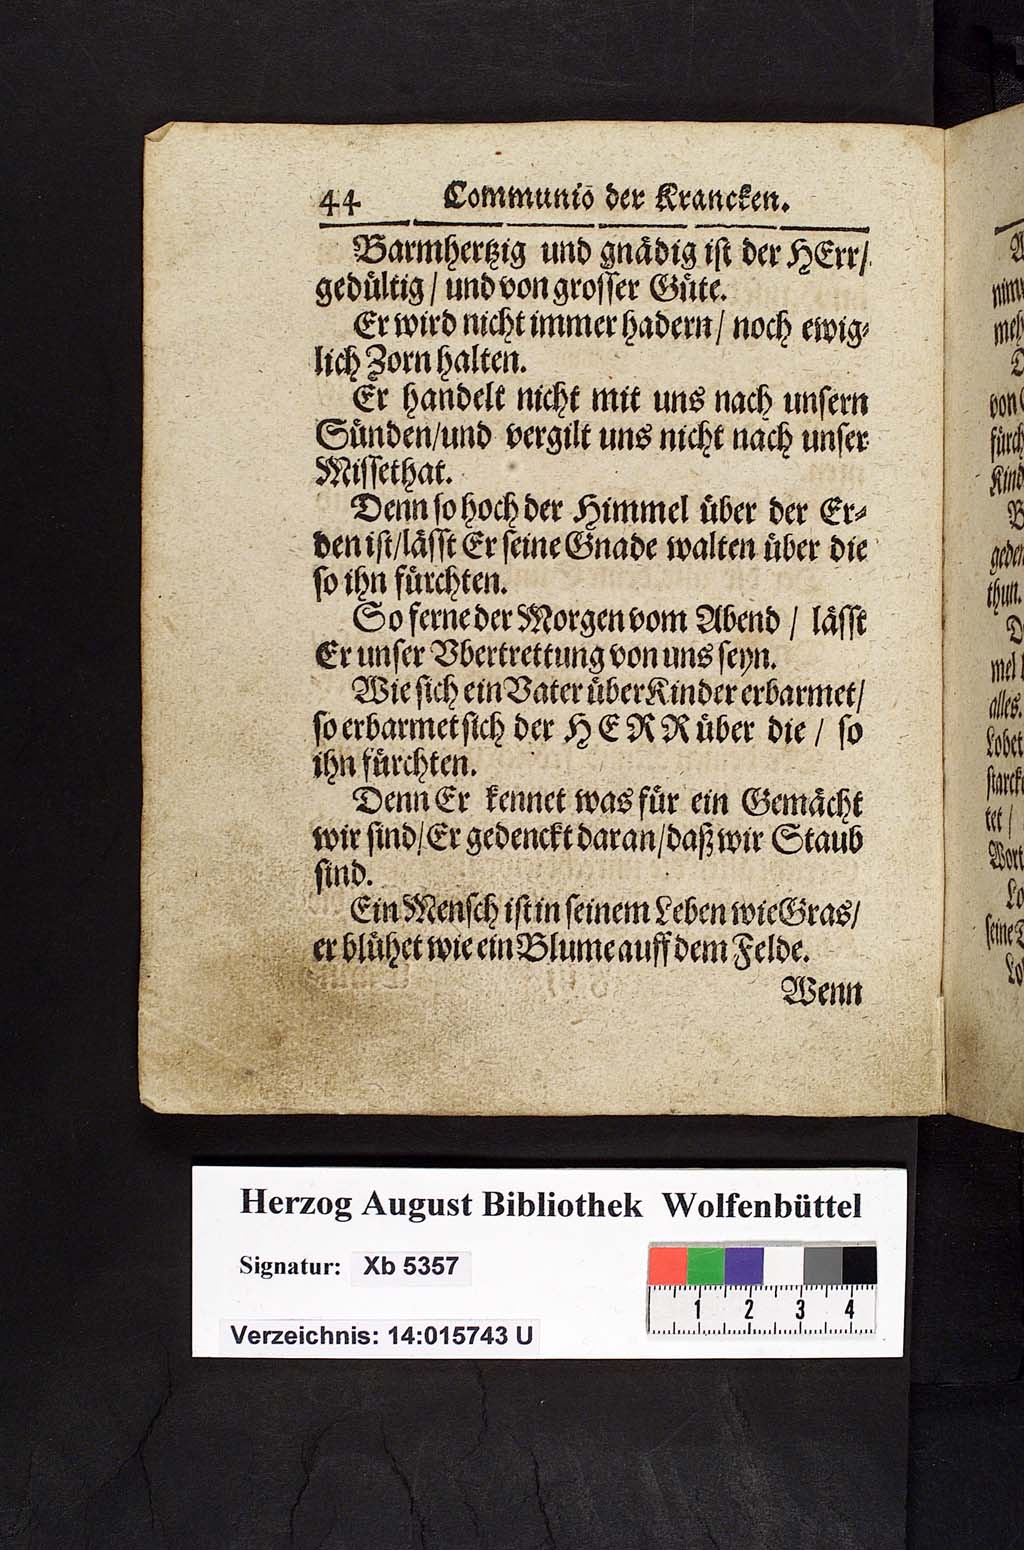 44 Communiō der Krancken.
Barmhertzig und gnädig ist der HErr/
gedültig / und von grosser Güte.
Er wird nicht immer hadern / noch ewig-
lich Zorn halten.
Er handelt nicht mit uns nach unsern
Sünden/und vergilt uns nicht nach unser
Missethat.
Denn so hoch der Himmel über der Er-
den ist/lässt Er seine Gnade walten über die
so ihn fürchten.
So ferne der Morgen vom Abend / lässt
Er unser Vbertrettung von uns seyn.
Wie sich ein Vater über Kinder erbarmet/
so erbarmet sich der HERR über die / so
ihn fürchten.
Denn Er kennet was für ein Gemächt
wir sind/Er gedenckt daran/daß wir Staub
sind.
Ein Mensch ist in seinem Leben wie Gras/
er blühet wie ein Blume auff dem Felde.
Wenn
nim
meh
von
fürch
Kind
geden
thun.
mel
alles.
Lobet
starck
tet /
Wort
Lo
seine
Lo
Herzog August Bibliothek Wolfenbüttel
Signatur: Xb 5357
Verzeichnis: 14:015743 U
1 2 3 4